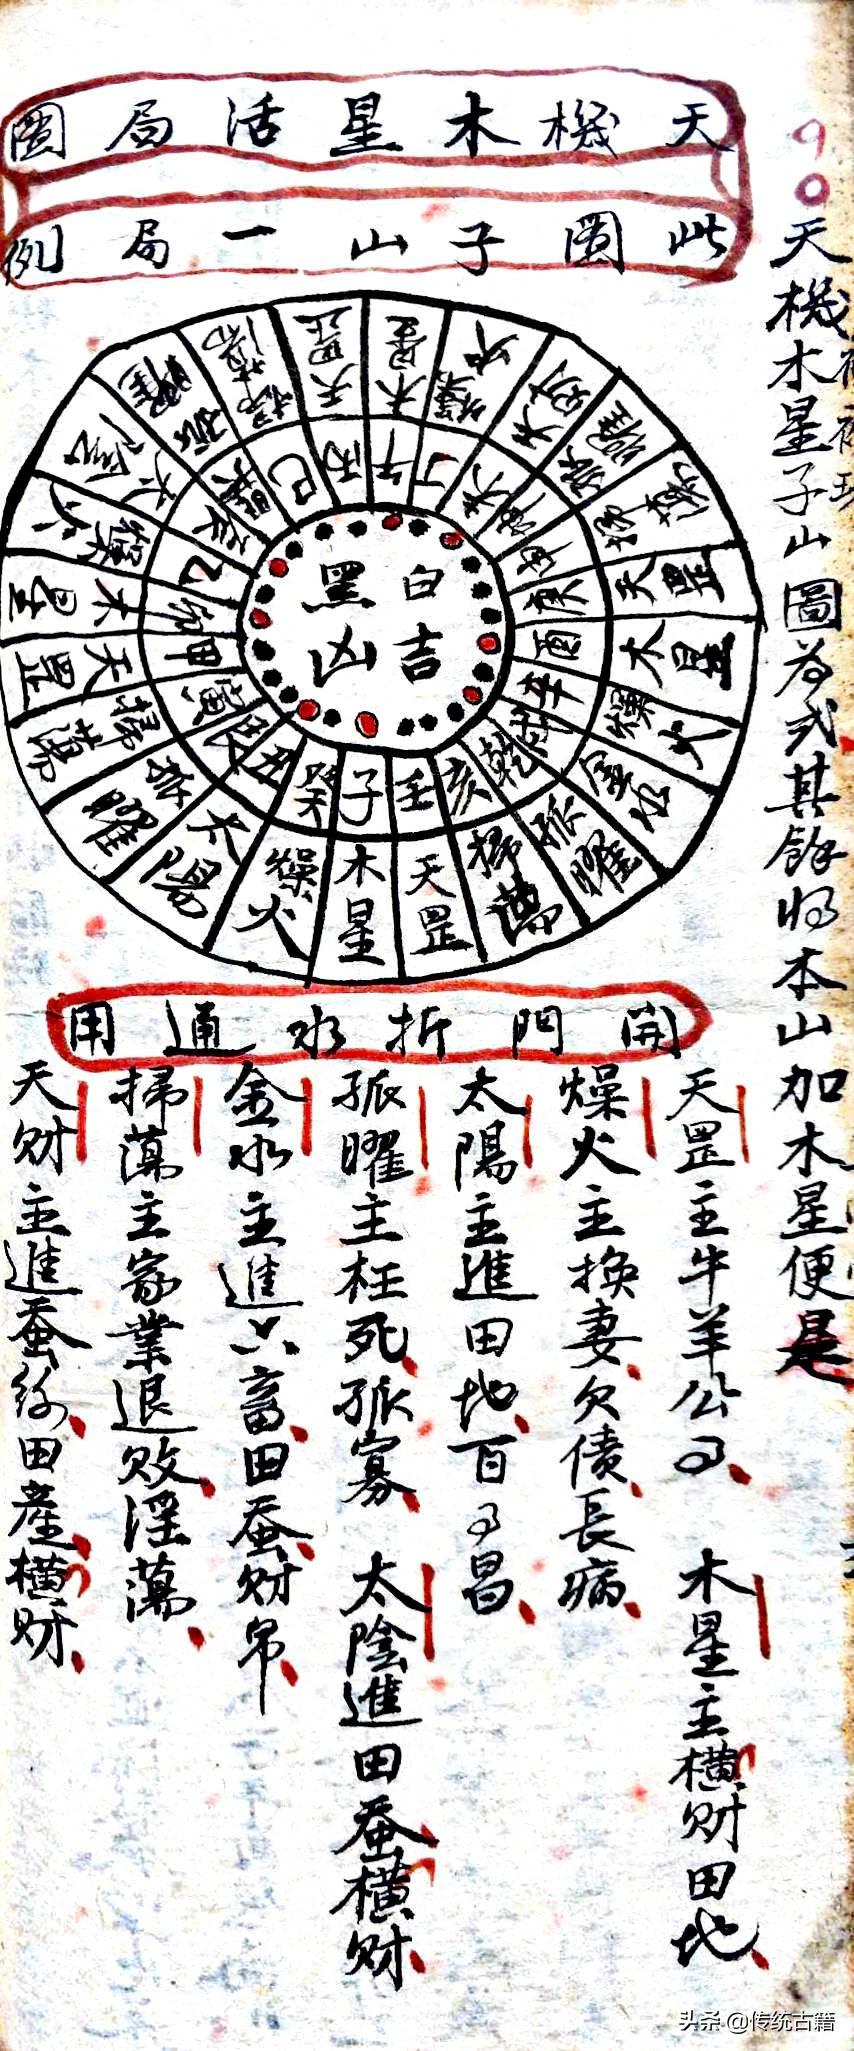 90
天機木星子山圖為式其餘将本山加木星便是
天機木星活局圖
此圖子山一局例
白吉
黑凶
子 木星
癸 燥火
丑 太陽
艮 孤曜
寅 掃蕩
甲 天罡
卯 木星
乙 燥火
辰 太陰
巽 孤曜
巳 掃蕩
丙 天罡
午 木星
丁 燥火
未 天财
坤 孤曜
申 掃蕩
庚 天罡
酉 木星
辛 燥火
戌 金水
乾 孤曜
亥 掃蕩
壬 天罡
開門折水通用
天罡主牛羊公事 木星主橫财田地
燥火主換妻欠債長病
太陽主進田地百事昌
孤曜主枉死孤寡 太陰進田蚕橫财
金水主進六畜田蚕财帛
掃蕩主家業退敗淫蕩
天财主進蚕絲田產橫财
头条 @传统古籍